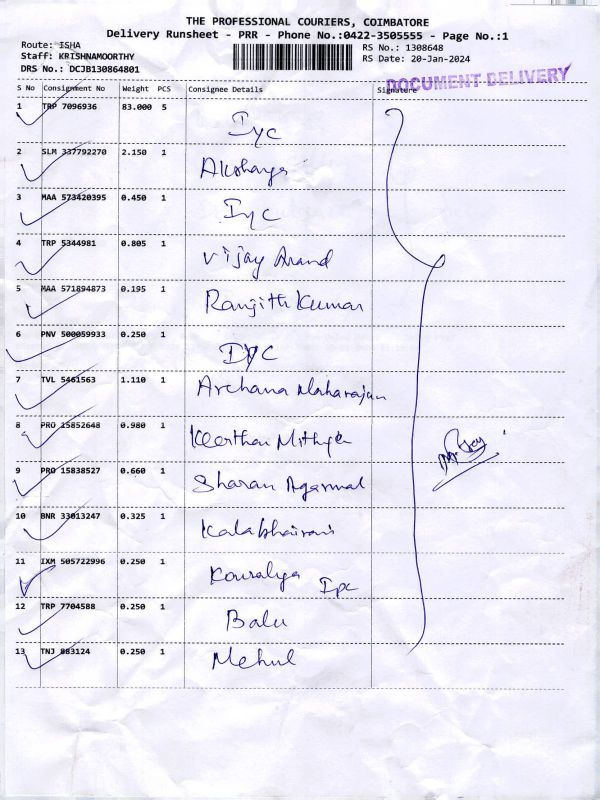 THE PROFESSIONAL COURIERS, COIMBATORE
Delivery Runsheet - PRR - Phone No.:0422-3505555 - Page No.:1
Route: ISHA
Staff: KRISHNAMOORTHY
DRS No.: DCJB130864801
RS No.: 1308648
RS Date: 20-Jan-2024
DOCUMENT DELIVERY
S No Consignment No Weight PCS Consignee Details Signature
1 TRP 7096936 83.000 5 Iyc
2 SLM 337792270 2.150 1 Akshaya
3 MAA 573420395 0.450 1 Iyc
4 TRP 5344981 0.805 1 Vijay Anand
5 MAA 571894873 0.195 1 Ranjith Kumar
6 PNV 500059933 0.250 1 IYC
7 TVL 5461563 1.110 1 Archana Maharajan
8 PRO 15852648 0.980 1
9 PRO 15838527 0.660 1 Sharan Agarwal
10 BNR 33013247 0.325 1 Kalabhairavi
11 IXM 505722996 0.250 1
12 TRP 7704588 0.250 1 Balu
13 TNJ 883124 0.250 1 Mehul